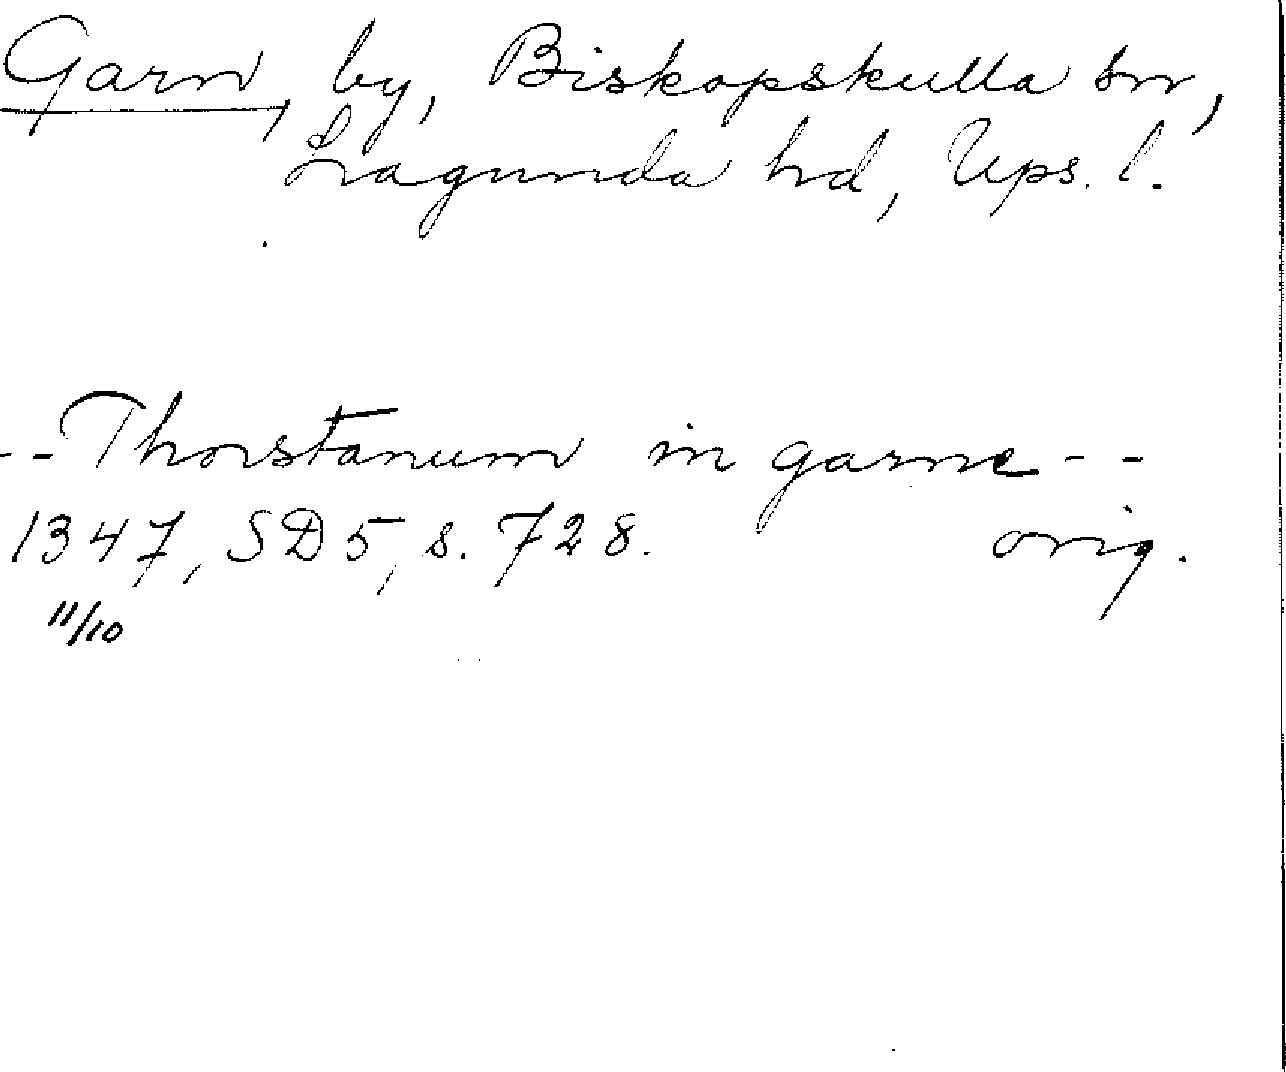 Garn, by, Biskopskulla sn,
Lagunda hd, Ups. l.
-- Thorstanum in garne --
1347, SD 5, s. 728. orig.
11/10